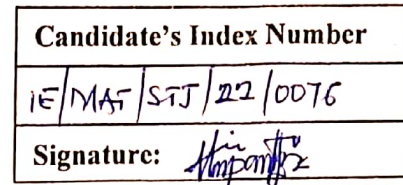 Candidate's Index Number
IE/MAT/STJ/22/0076
Signature: